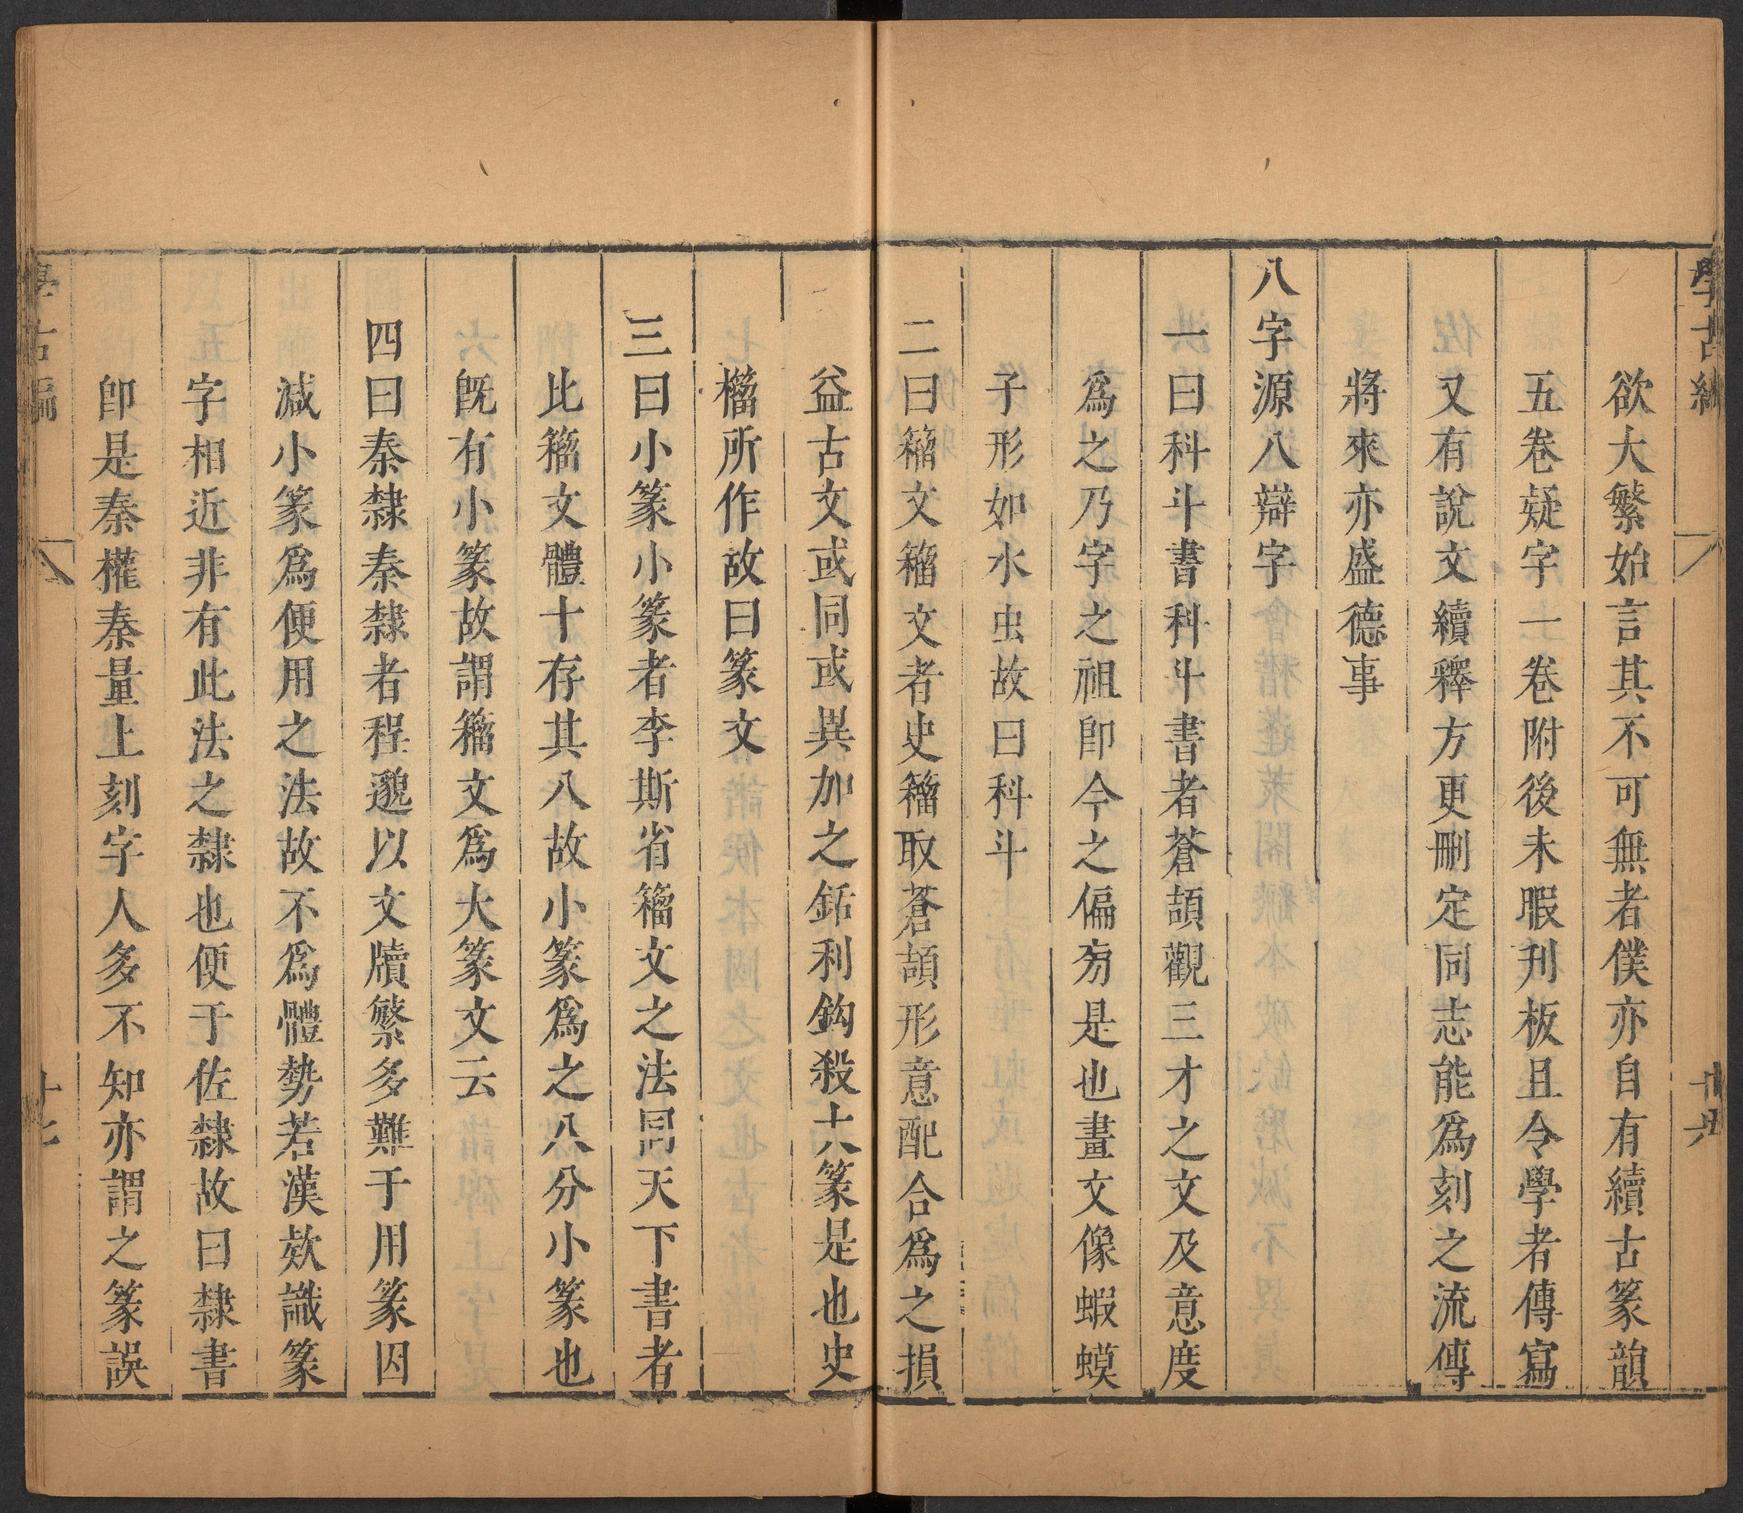 學古編
欲大繁始言其不可無者僕亦自有續古篆韻
五卷疑字一卷附後未暇刋板且令學者傳寫
又有說文續釋方更刪定同志能爲刻之流傳
將來亦盛德事
八字源八辯字
一曰科斗書科斗書者蒼頡觀三才之文及意度
爲之乃字之祖卽今之偏旁是也畫文像蝦蟆
子形如水虫故曰科斗
二曰籀文籀文者史籀取蒼頡形意配合爲之損
益古文或同或異加之銛利鈎殺大篆是也史
籀所作故曰篆文
三曰小篆小篆者李斯省籀文之法同天下書者
比籀文體十存其八故小篆爲之八分小篆也
旣有小篆故謂籀文爲大篆文云
四曰秦隸秦隸者程邈以文牘繁多難于用篆因
減小篆爲便用之法故不爲體勢若漢欵識篆
字相近非有此法之隸也便于佐隸故曰隸書
卽是秦權秦量上刻字人多不知亦謂之篆誤
學古編
十七